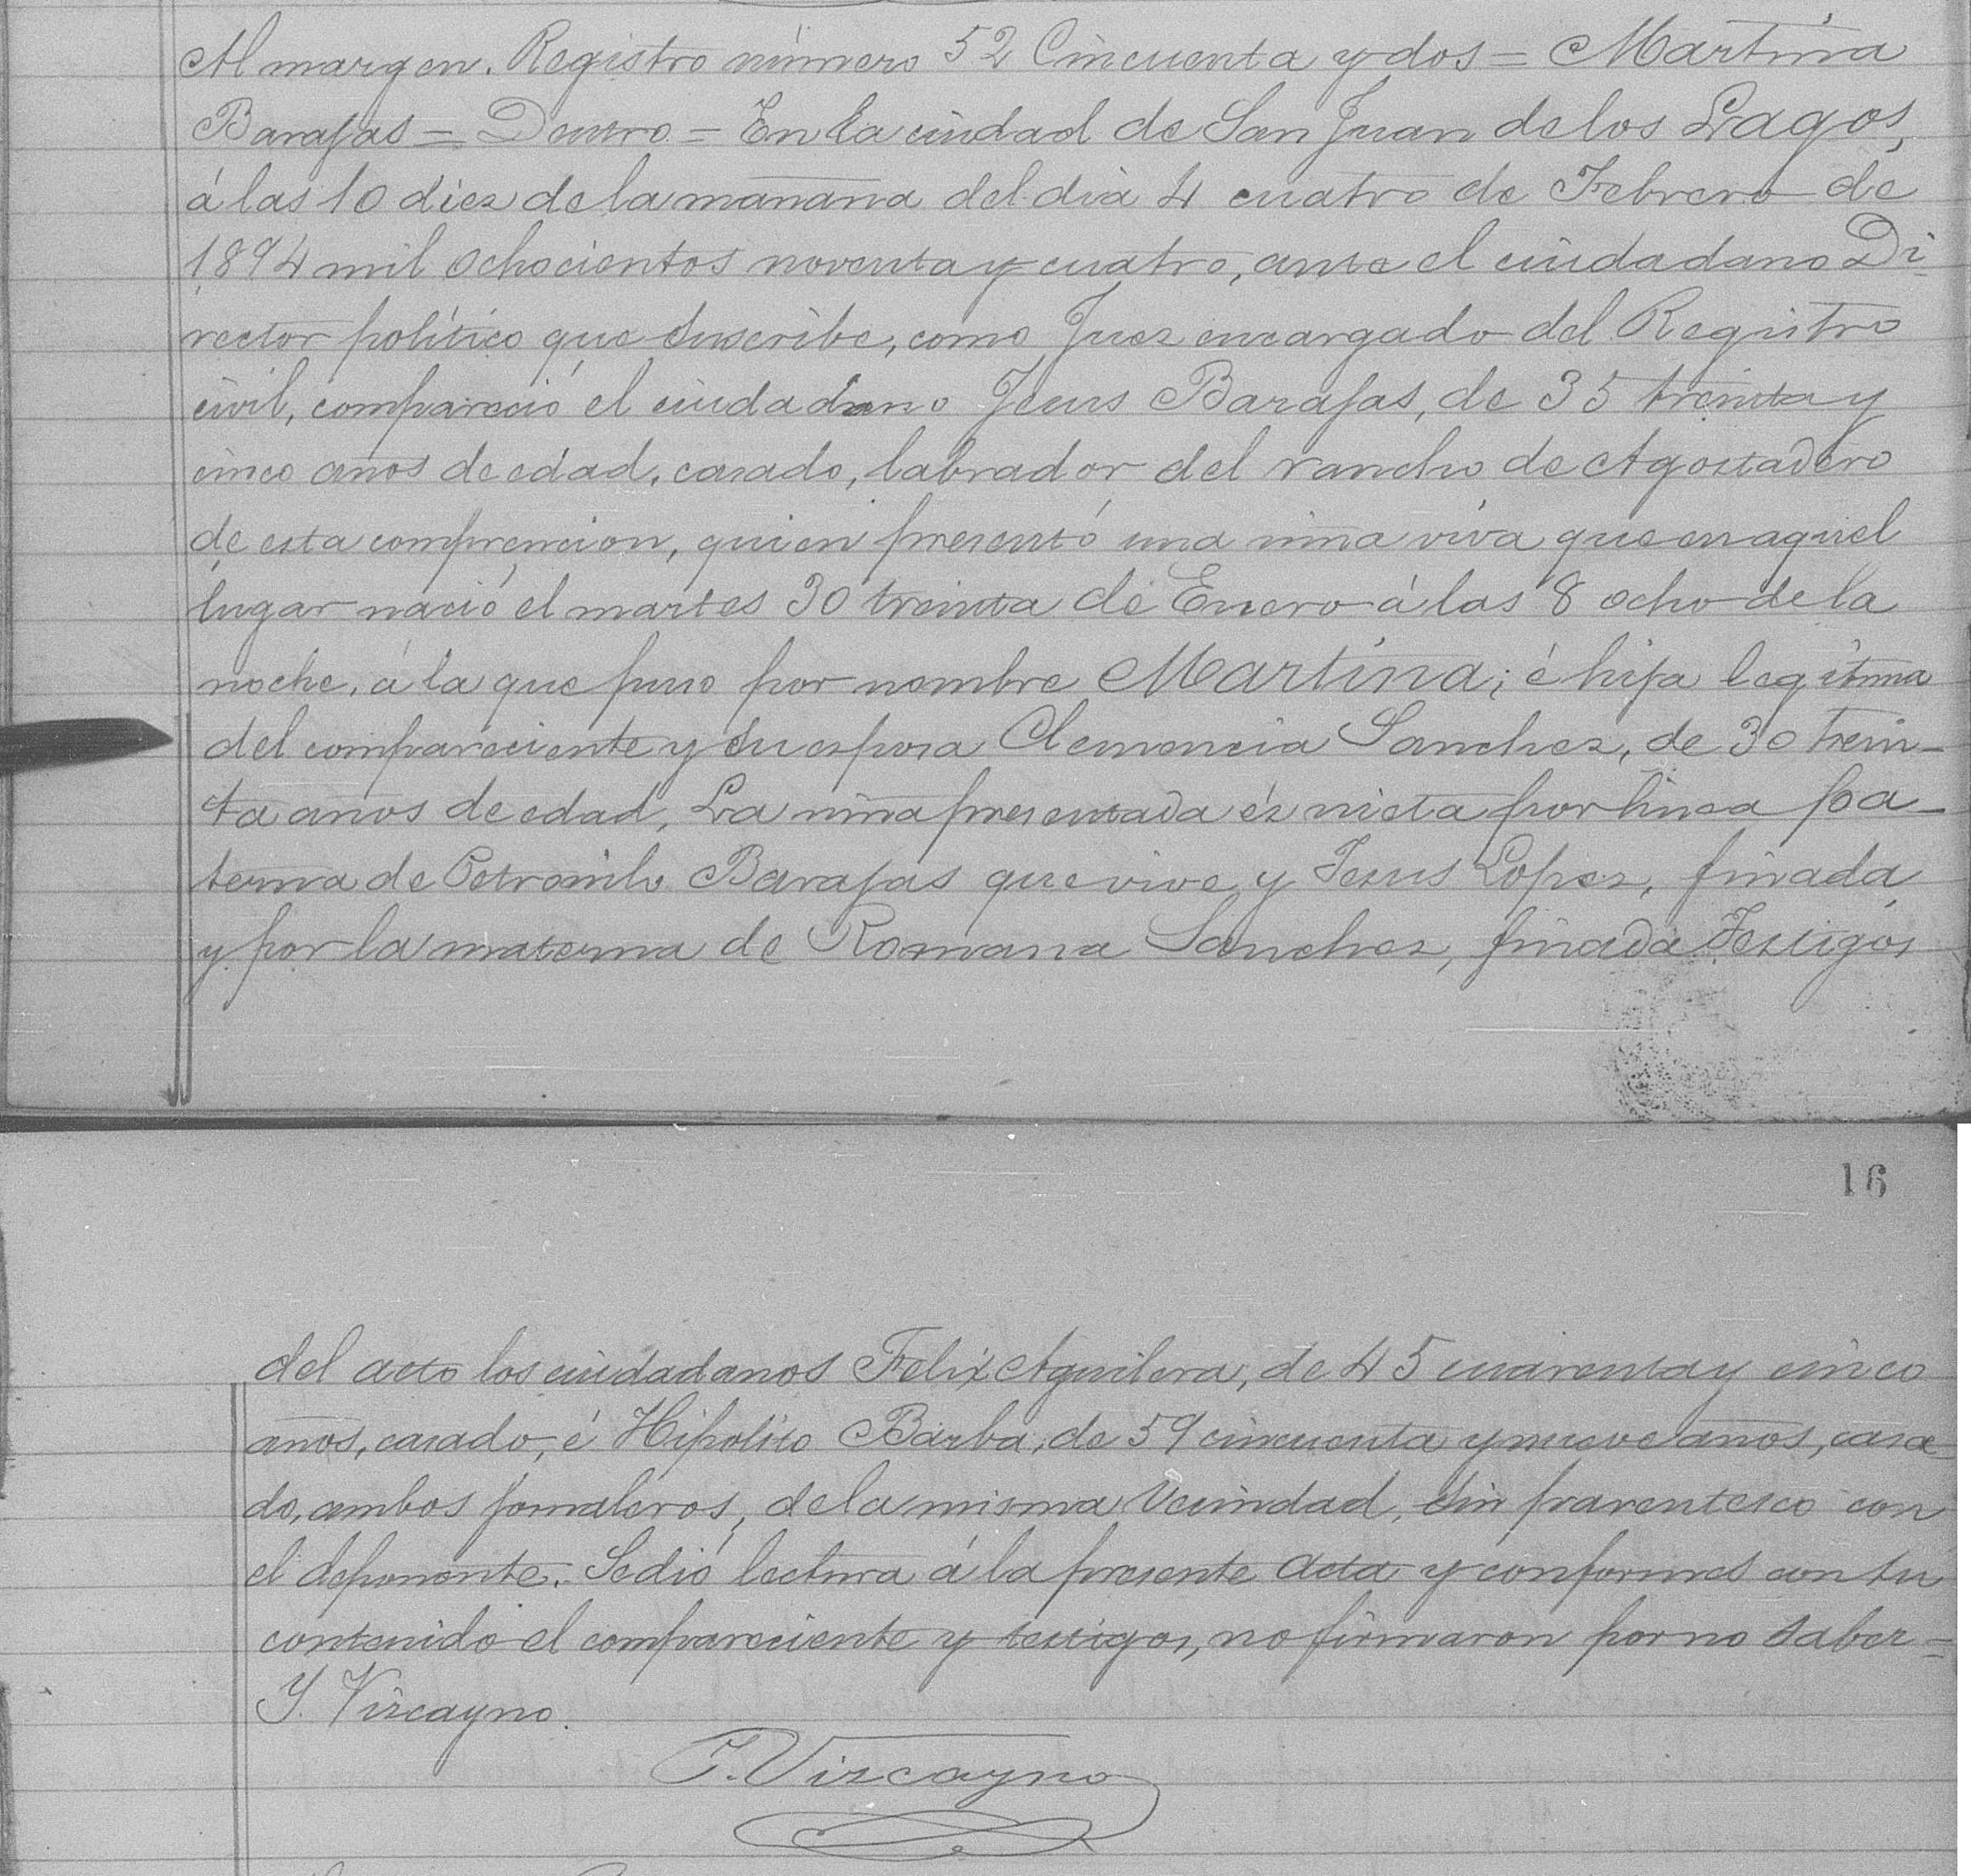 Al margen. Registro número 52 Cincuenta y dos = Martina
Barajas = Dentro = En la ciudad de San Juan de los Lagos,
á las 10 diez de la mañana del dia 4 cuatro de Febrero de
1894 mil ochocientos noventa y cuatro, ante el ciudadano Di-
rector político que suscribe, como Juez encargado del Registro
civil, compareció el ciudadano Jesus Barajas, de 35 treinta y
cinco años de edad, casado, labrador del rancho de Agostadero
de esta comprencion, quien presentó una niña viva que en aquel
lugar nació el martes 30 treinta de Enero á las 8 ocho de la
noche, á la que puso por nombre Martina; é hija legitima
del compareciente y su esposa Clemencia Sanchez, de 30 trein-
ta años de edad, La niña presentada és nieta por linea pa-
terna de Petronilo Barajas que vive y Jesus Lopez, finada
y por la materna de Romana Sanchez, finada Testigos
16
del acto los ciudadanos Felix Aguilera, de 45 cuarenta y cinco
años, casado, é Hipolito Barba, de 59 cincuenta y nueve años, casa-
do, ambos jornaleros, de la misma vecindad, sin parentesco con
el deponente. Se dió lectura á la presente acta y conformes con su
contenido el compareciente y testigos, no firmaron por no saber =
Y. Vizcayno.
Y. Vizcayno